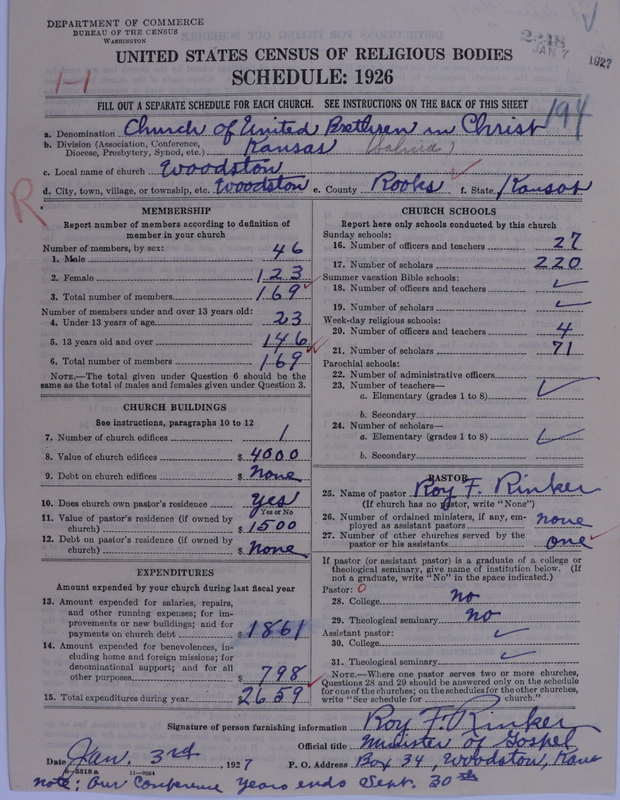 DEPARTMENT OF COMMERCE
BUREAU OF THE CENSUS
WASHINGTON
2248
JAN 7 1927
UNITED STATES CENSUS OF RELIGIOUS BODIES
SCHEDULE: 1926
1-1
FILL OUT A SEPARATE SCHEDULE FOR EACH CHURCH. SEE INSTRUCTIONS ON THE BACK OF THIS SHEET
194
a. Denomination Church of United Brethren in Christ
b. Division (Association, Conference, Diocese, Presbytery, Synod, etc.) Kansas (Salina)
c. Local name of church Woodston
d. City, town, village, or township, etc. Woodston e. County Rooks f. State Kansas
R
MEMBERSHIP
Report number of members according to definition of member in your church
Number of members, by sex:
1. Male 46
2. Female 123
3. Total number of members 169
Number of members under and over 13 years old:
4. Under 13 years of age 23
5. 13 years old and over 146
6. Total number of members 169
NOTE.—The total given under Question 6 should be the same as the total of males and females given under Question 3.
CHURCH BUILDINGS
See instructions, paragraphs 10 to 12
7. Number of church edifices 1
8. Value of church edifices $ 4000
9. Debt on church edifices $ none
10. Does church own pastor's residence yes
Yes or No
11. Value of pastor's residence (if owned by church) $ 1500
12. Debt on pastor's residence (if owned by church) $ none
EXPENDITURES
Amount expended by your church during last fiscal year
13. Amount expended for salaries, repairs, and other running expenses; for improvements or new buildings; and for payments on church debt $ 1861
14. Amount expended for benevolences, including home and foreign missions; for denominational support; and for all other purposes $ 798
15. Total expenditures during year $ 2659
CHURCH SCHOOLS
Report here only schools conducted by this church
Sunday schools:
16. Number of officers and teachers 27
17. Number of scholars 220
Summer vacation Bible schools:
18. Number of officers and teachers
19. Number of scholars
Week-day religious schools:
20. Number of officers and teachers 4
21. Number of scholars 71
Parochial schools:
22. Number of administrative officers
23. Number of teachers—
a. Elementary (grades 1 to 8)
b. Secondary
24. Number of scholars—
a. Elementary (grades 1 to 8)
b. Secondary
PASTOR
25. Name of pastor Roy F. Rinker
(If church has no pastor, write "None")
26. Number of ordained ministers, if any, employed as assistant pastors none
27. Number of other churches served by the pastor or his assistants one
If pastor (or assistant pastor) is a graduate of a college or theological seminary, give name of institution below. (If not a graduate, write "No" in the space indicated.)
Pastor: 0
28. College no
29. Theological seminary no
Assistant pastor:
30. College
31. Theological seminary
NOTE.—Where one pastor serves two or more churches, Questions 28 and 29 should be answered only on the schedule for one of the churches; on the schedules for the other churches, write "See schedule for church."
Signature of person furnishing information Roy F. Rinker
Official title Minister of Gospel
Date Jan. 3rd, 1927 P. O. Address Box 34, Woodston, Kans
6-5518a 11-9034
note; Our Conference Years ends Sept. 30th